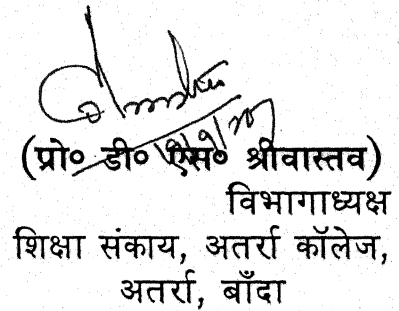 (प्रो० डी० एस० श्रीवास्तव)
विभागाध्यक्ष
शिक्षा संकाय, अतर्रा कॉलेज,
अतर्रा, बाँदा